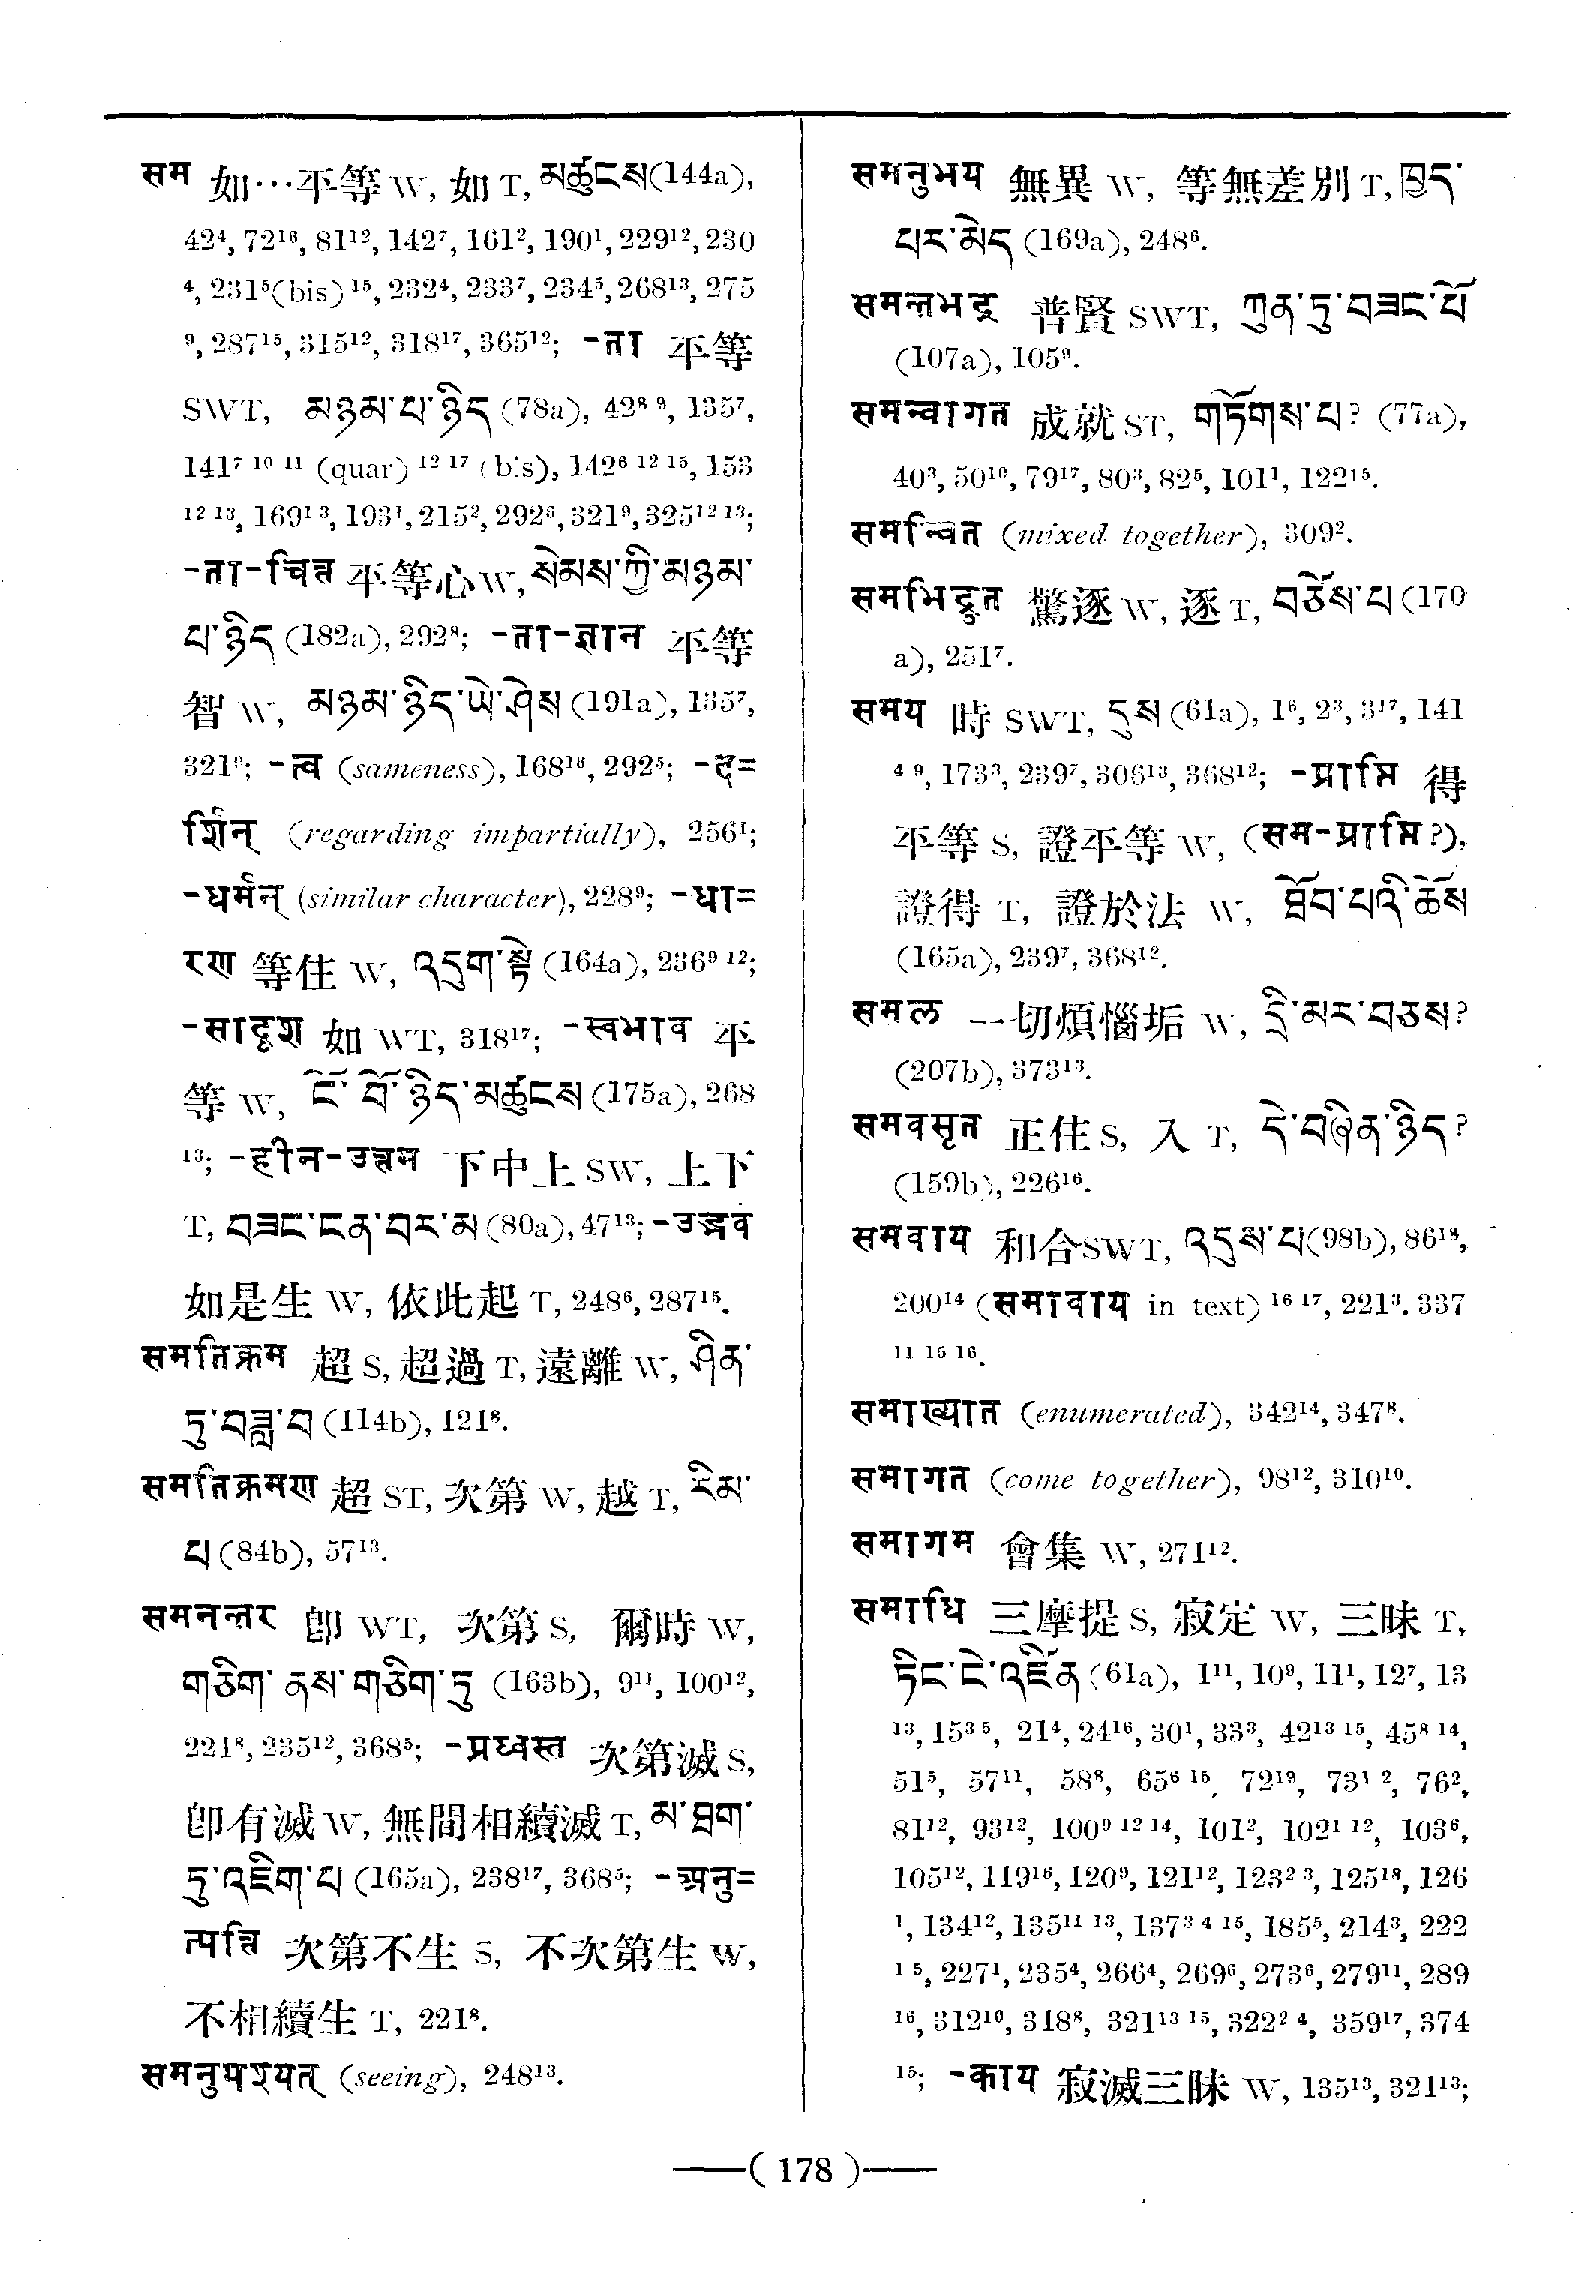 सम 如…平等 W, 如 T, མཚུངས(144a),
42⁴, 72¹⁶, 81¹², 142⁷, 161², 190¹, 229¹², 230
⁴, 231⁵(bis)¹⁵, 232⁴, 233⁷, 234⁵, 268¹³, 275
⁹, 287¹⁵, 315¹², 318¹⁷, 365¹²; -ता 平等
SWT, མཉམ་པ་ཉིད (78a), 42⁸ ⁹, 135⁷,
141⁷ ¹⁰ ¹¹ (quar) ¹² ¹⁷ (bis), 142⁶ ¹² ¹⁵, 153
¹² ¹³, 169¹ ³, 193¹, 215², 292⁸, 321⁹, 325¹² ¹³;
-ता-चित्त 平等心 W, སེམས་ཀྱི་མཉམ་
པ་ཉིད (182a), 292⁸; -ता-ज्ञान 平等
智 W, མཉམ་ཉིད་ཡེ་ཤེས (191a), 135⁷,
321⁹; -त्व (sameness), 168¹⁶, 292⁵; -द=
र्शिन् (regarding impartially), 256¹;
-धर्मन् (similar character), 228⁹; -धा=
रण 等住 W, འདུག་སྟེ (164a), 236⁹ ¹²;
-सादृश 如 WT, 318¹⁷; -स्वभाव 平
等 W, ངོ་བོ་ཉིད་མཚུངས (175a), 268
¹³; -हीन-उत्तम 下中上 SW, 上下
T, བཟང་ངན་བར་མ (80a), 47¹³; -उद्भव
如是生 W, 依此起 T, 248⁶, 287¹⁵.
समतिक्रम 超 S, 超過 T, 遠離 W, ཤིན་
ཏུ་བཟླ་བ (114b), 121⁸.
समतिक्रमण 超 ST, 次第 W, 越 T, རིམ་
པ (84b), 57¹³.
समनन्तर 卽 WT, 次第 S, 爾時 W,
གཅིག་ནས་གཅིག་ཏུ (163b), 9¹¹, 100¹²,
221⁸, 235¹², 368⁵; -प्रध्वस्त 次第滅 S,
卽有滅 W, 無間相續滅 T, མ་ཐག་
ཏུ་འཇིག་པ (165a), 238¹⁷, 368⁵; -अनु=
त्पत्ति 次第不生 S, 不次第生 W,
不相續生 T, 221⁸.
समनुपश्यत् (seeing), 248¹³.
समनुभय 無異 W, 等無差別 T, ཁྱད་
པར་མེད (169a), 248⁶.
समन्तभद्र 普賢 SWT, ཀུན་ཏུ་བཟང་པོ
(107a), 105⁹.
समन्वागत 成就 ST, གཏོགས་པ? (77a),
40³, 50¹⁰, 79¹⁷, 80³, 82⁵, 101¹, 122¹⁵.
समन्वित (mixed together), 309².
समभिद्रुत 驚逐 W, 逐 T, བཅོས་པ (170
a), 251⁷.
समय 時 SWT, དུས (61a), 1⁶, 2³, 3¹⁷, 141
⁴ ⁹, 173³, 239⁷, 306¹³, 368¹²; -प्राप्ति 得
平等 S, 證平等 W, (सम-प्राप्ति?),
證得 T, 證於法 W, ཐོབ་པའི་ཆོས
(165a), 239⁷, 368¹².
समल 一切煩惱垢 W, དྲི་མར་བཅས?
(207b), 373¹³.
समवसृत 正住 S, 入 T, དེ་བཞིན་ཉིད?
(159b), 226¹⁶.
समवाय 和合SWT, འདུས་པ(98b), 86¹⁸,
200¹⁴ (समावाय in text) ¹⁶ ¹⁷, 221³. 337
¹¹ ¹⁵ ¹⁶.
समाख्यात (enumerated), 342¹⁴, 347⁸.
समागत (come together), 98¹², 310¹⁰.
समागम 會集 W, 271¹².
समाधि 三摩提 S, 寂定 W, 三昧 T,
ཏིང་ངེ་འཛིན (61a), 1¹¹, 10⁹, 11¹, 12⁷, 13
¹³, 15³ ⁵, 21⁴, 24¹⁶, 30¹, 33³, 42¹³ ¹⁵, 45⁸ ¹⁴,
51⁵, 57¹¹, 58⁸, 65⁶ ¹⁵, 72¹⁹, 73¹ ², 76²,
81¹², 93¹², 100⁹ ¹² ¹⁴, 101², 102¹ ¹², 103⁶,
105¹², 119¹⁶, 120⁹, 121¹², 123² ³, 125¹⁸, 126
¹, 134¹², 135¹¹ ¹³, 137³ ⁴ ¹⁵, 185⁵, 214³, 222
¹ ⁵, 227¹, 235⁴, 266⁴, 269⁶, 273⁶, 279¹¹, 289
¹⁶, 312¹⁰, 318⁸, 321¹³ ¹⁵, 322² ⁴, 359¹⁷, 374
¹⁵; -काय 寂滅三昧 W, 135¹³, 321¹³;
—( 178 )—